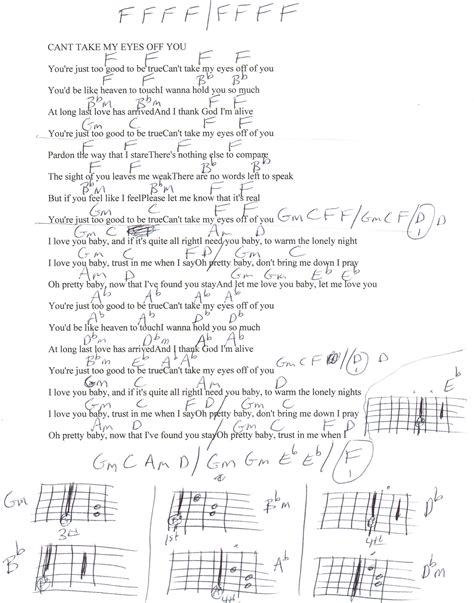 F F F F / F F F F
CANT TAKE MY EYES OFF YOU
F F F F
You're just too good to be trueCan't take my eyes off of you
F F Bb Bb
You'd be like heaven to touchI wanna hold you so much
Bbm Bbm F F
At long last love has arrivedAnd I thank God I'm alive
Gm C F F
You're just too good to be trueCan't take my eyes off of you
F F F F
Pardon the way that I stareThere's nothing else to compare
F F Bb Bb
The sight of you leaves me weakThere are no words left to speak
Bbm Bbm F F
But if you feel like I feelPlease let me know that it's real
Gm C F F
You're just too good to be trueCan't take my eyes off of you Gm C F F / Gm C F / D D
1
Gm C Am D
I love you baby, and if it's quite all rightI need you baby, to warm the lonely night
Gm C F D / Gm C
I love you baby, trust in me when I sayOh pretty baby, don't bring me down I pray
Am D Gm Gm Eb Eb
Oh pretty baby, now that I've found you stayAnd let me love you baby, let me love you
Ab Ab Ab Ab
You're just too good to be trueCan't take my eyes off of you
Ab Ab Db Db
You'd be like heaven to touchI wanna hold you so much
Dbm Dbm Ab Ab
At long last love has arrivedAnd I thank God I'm alive
Bbm Eb Ab Ab
You're just too good to be trueCan't take my eyes off of you Gm C F / D D
1
Gm C Am D
I love you baby, and if it's quite all rightI need you baby, to warm the lonely nights
Eb
Gm C F D / Gm C
I love you baby, trust in me when I sayOh pretty baby, don't bring me down I pray
Am D
Oh pretty baby, now that I've found you stayOh pretty baby, trust in me when I
Gm C Am D / Gm Gm Eb Eb / F
1
Gm Bbm Db
3rd 1st 4th
Bb Ab Dbm
4th